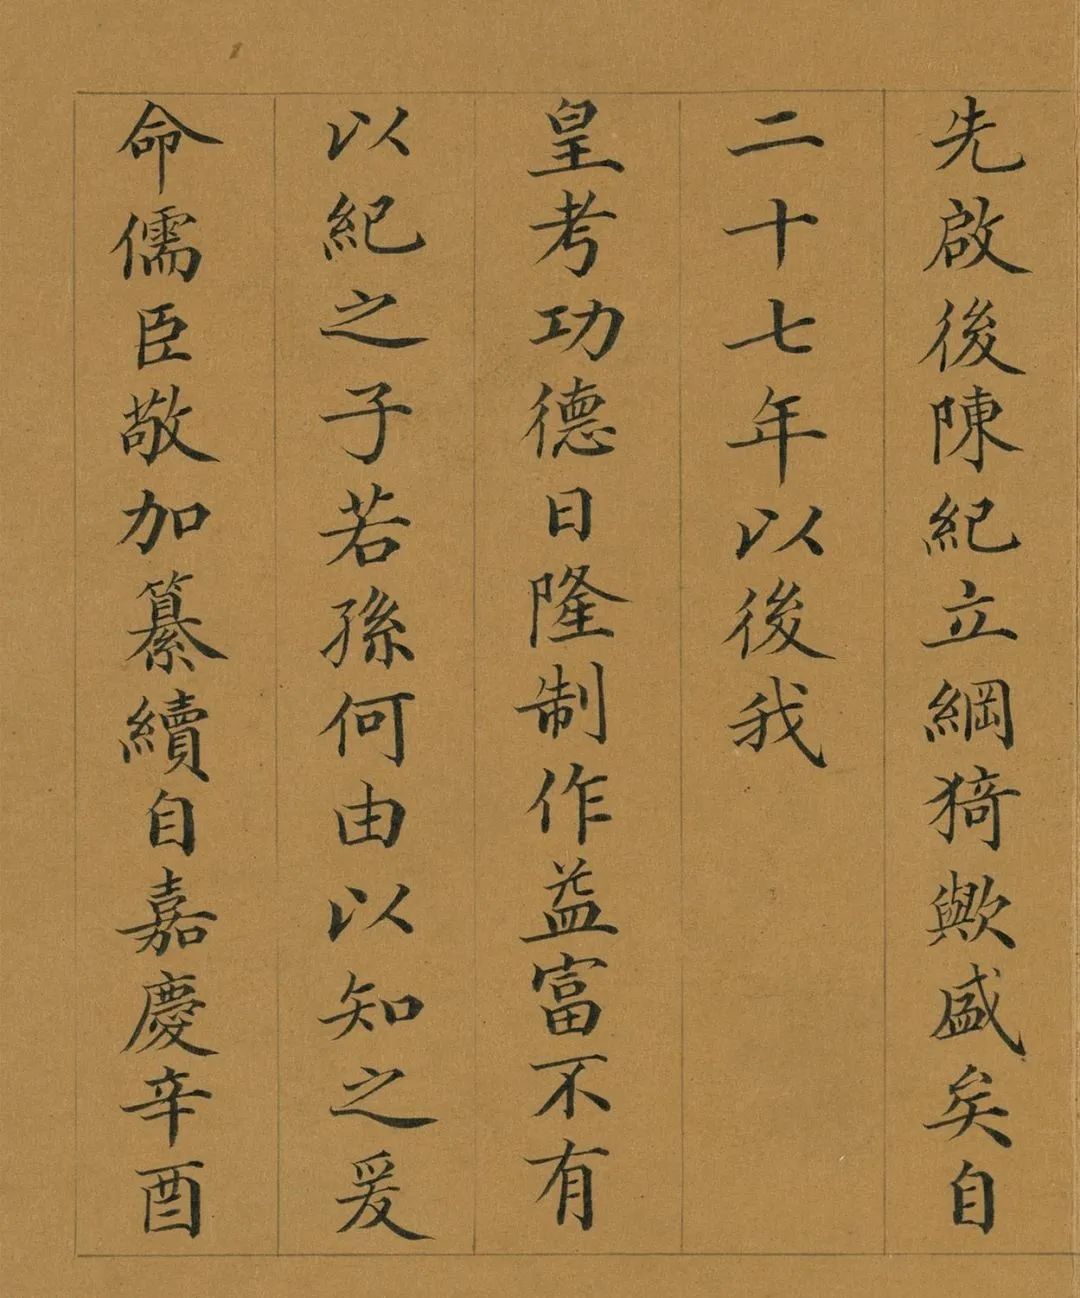 先啟後陳紀立綱猗歟盛矣自
二十七年以後我
皇考功德日隆制作益富不有
以紀之子若孫何由以知之爰
命儒臣敬加纂續自嘉慶辛酉